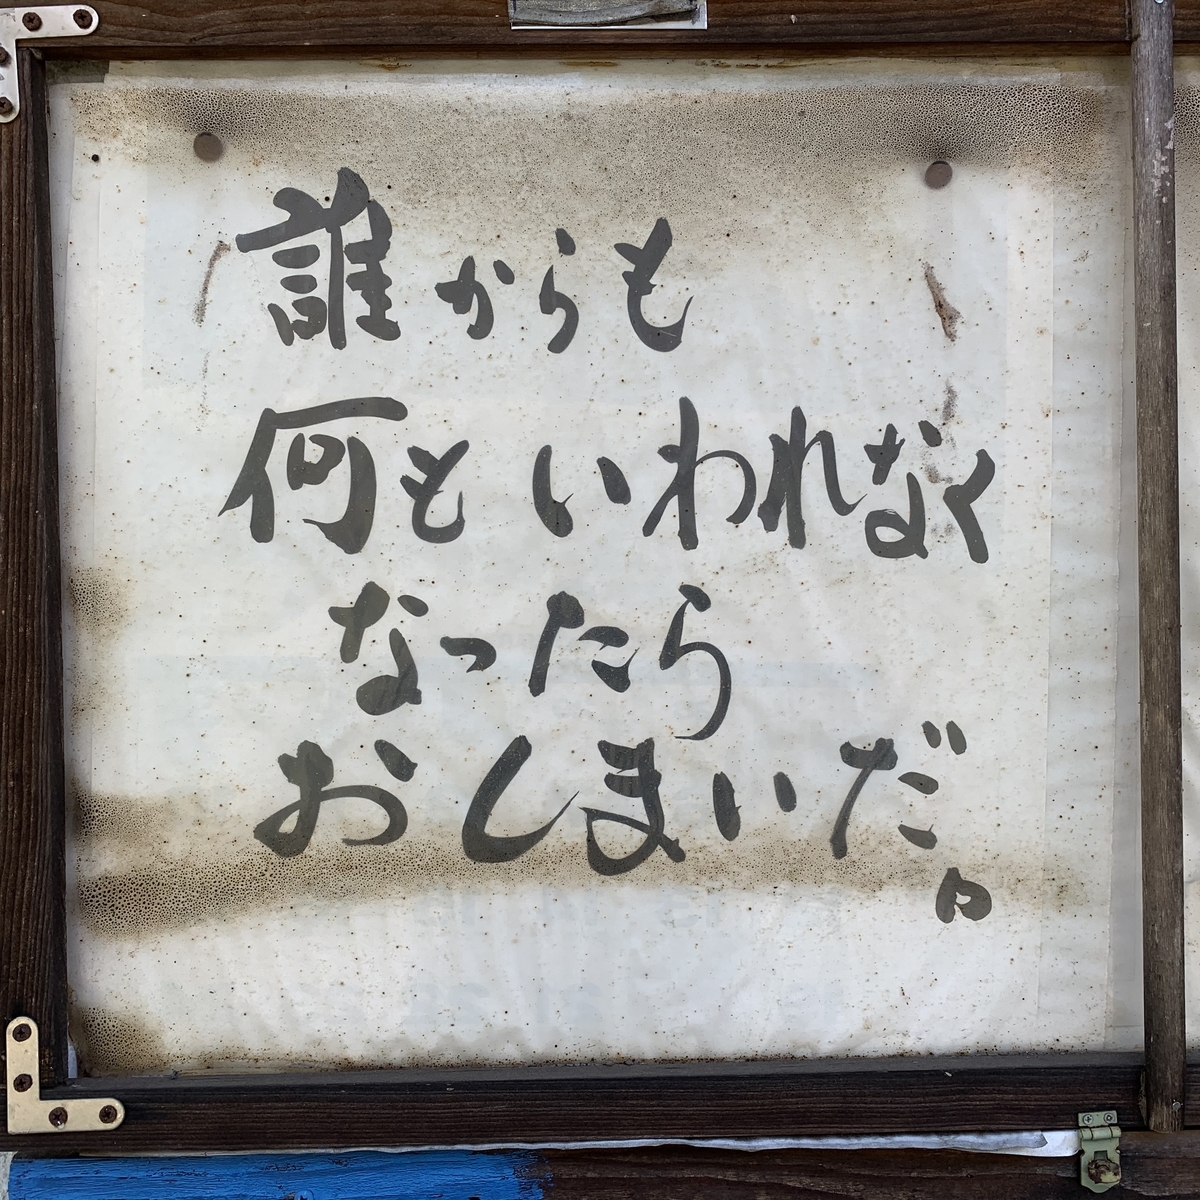 誰からも
何もいわれなく
なったら
おしまいだ。